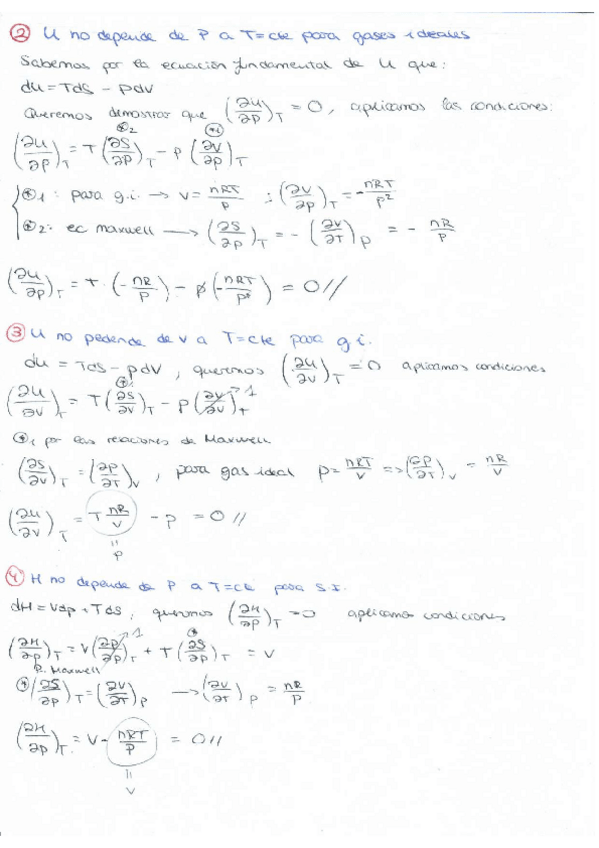 ② U no depende de P a T=cte para gases ideales
Sabemos por la ecuación fundamental de U que:
dU = TdS - PdV
Queremos demostrar que (∂U/∂P)_T = 0, aplicamos las condiciones:
(∂U/∂P)_T = T (∂S/∂P)_T ⊛2 - P (∂V/∂P)_T ⊛1
⊛1: para g.i. → V = nRT/P ; (∂V/∂P)_T = - nRT/P²
⊛2: ec maxwell → (∂S/∂P)_T = - (∂V/∂T)_P = - nR/P
(∂U/∂P)_T = T · (- nR/P) - P (- nRT/P²) = 0 //
③ U no pedende de V a T=cte para g.i.
dU = TdS - pdV, queremos (∂U/∂V)_T = 0 aplicamos condiciones
(∂U/∂V)_T = T (∂S/∂V)_T ⊛1 - P (∂V/∂V)_T → 1
⊛1 por las relaciones de Maxwell
(∂S/∂V)_T = (∂P/∂T)_V , para gas ideal P = nRT/V => (∂P/∂T)_V = nR/V
(∂U/∂V)_T = T nR/V - P = 0 //
=
P
④ H no depende de P a T=cte para
dH = Vdp + TdS, queremos (∂H/∂P)_T = 0 aplicamos condiciones
(∂H/∂P)_T = V (∂P/∂P)_T → 1 + T (∂S/∂P)_T ⊛ = V
R. Maxwell
⊛ (∂S/∂P)_T = (∂V/∂T)_P → (∂V/∂T)_P = nR/P
(∂H/∂P)_T = V - nRT/P = 0 //
=
V